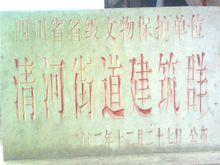 四川省省级文物保护单位
清河街道建筑群
二〇〇二年十二月二十七日 公布